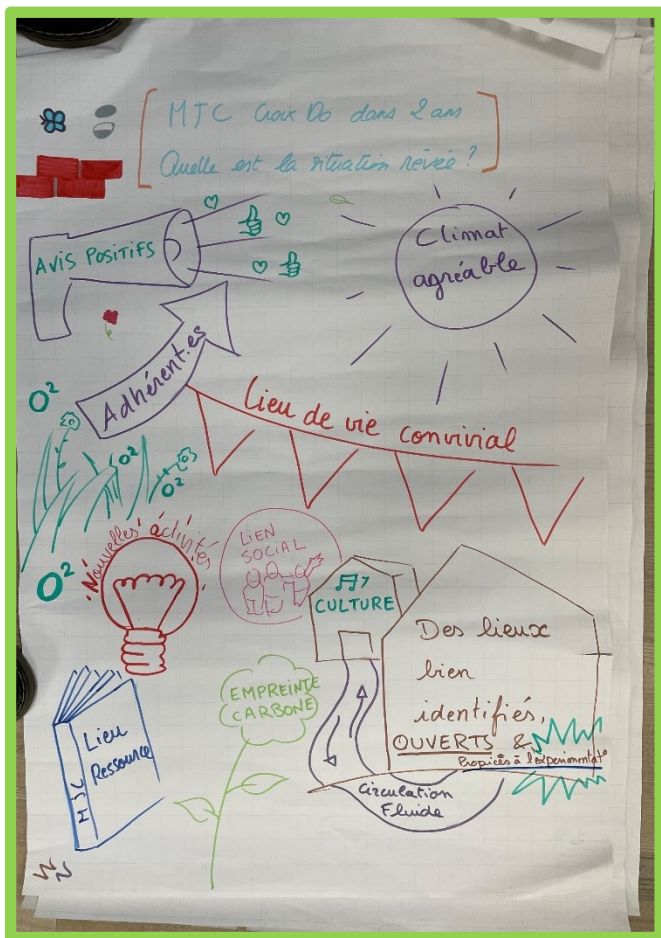 MJC Croix Do dans 2 ans
Quelle est la situation rêvée ?
AVIS POSITIFS
Climat
agréable
Adhérent.es
Lieu de vie convivial
O²
O²
O²
O²
Nouvelles activités
LIEN
SOCIAL
CULTURE
Des lieux
bien
identifiés,
OUVERTS &
Propices à l'expérimentat°
EMPREINTE
CARBONE
Lieu
Ressource
MJC
Circulation
Fluide